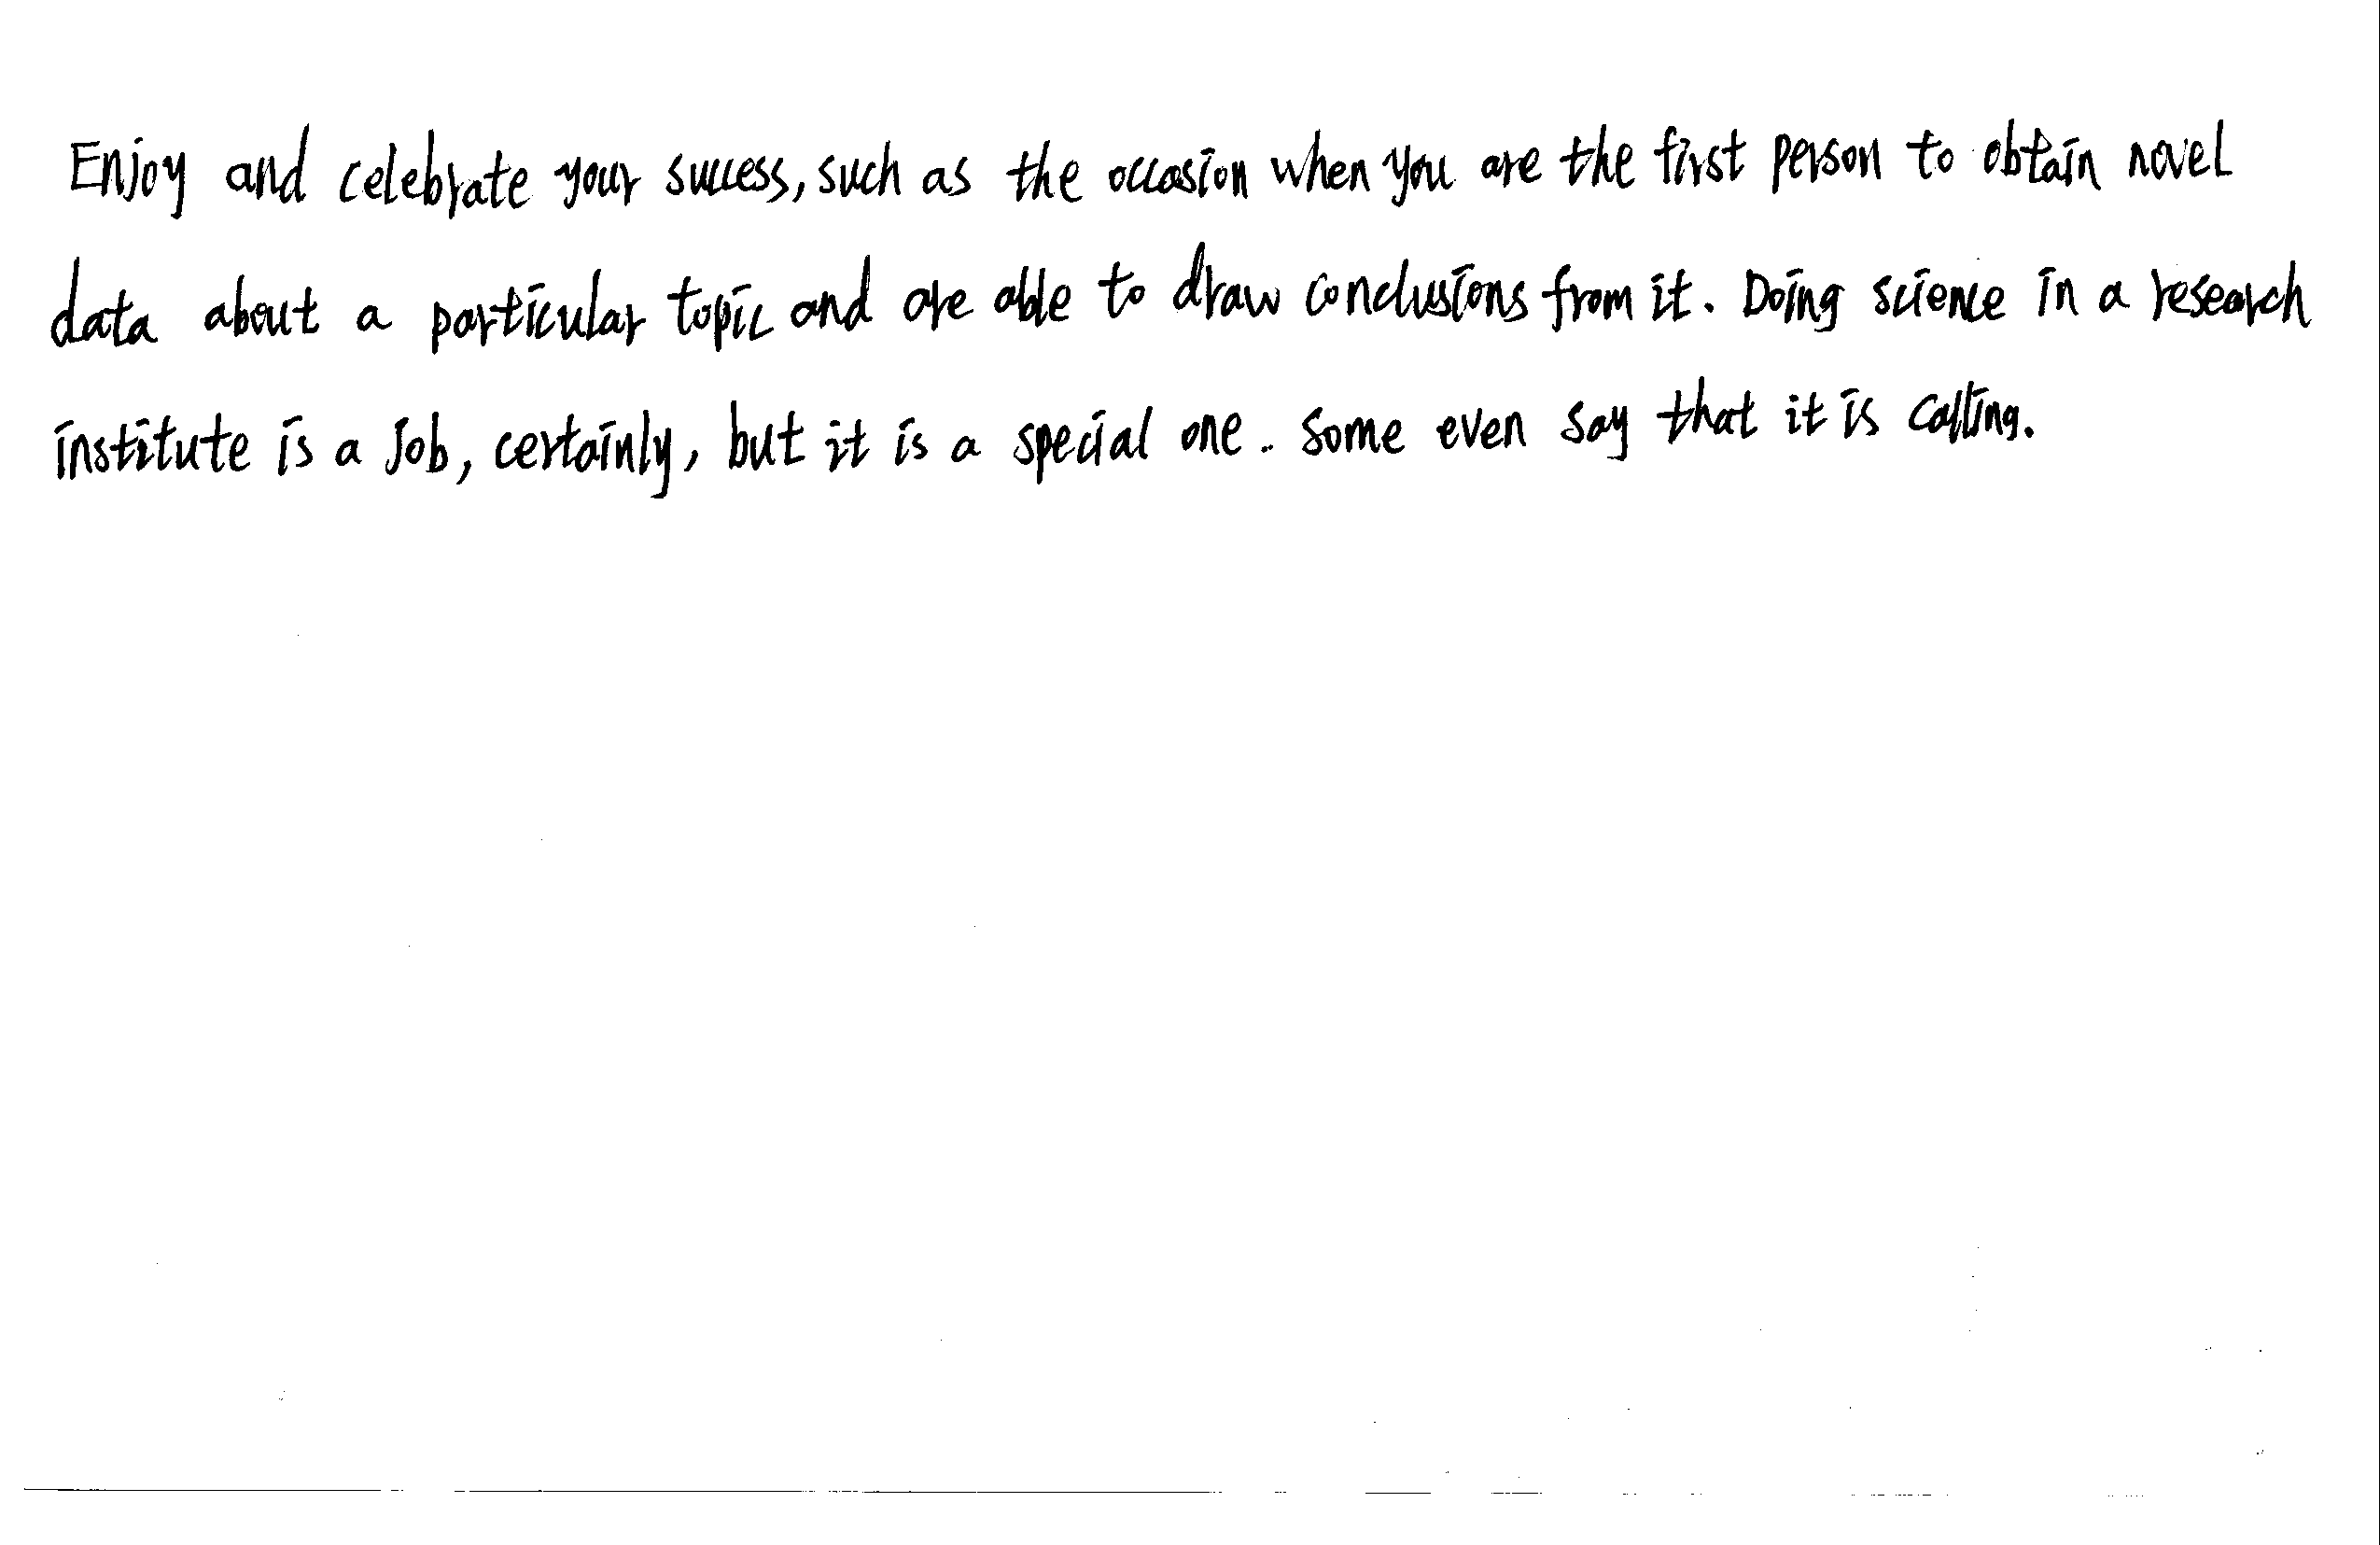 Enjoy and celebrate your success, such as the occasion when you are the first person to obtain novel
data about a particular topic and are able to draw conclusions from it. Doing science in a research
institute is a Job, certainly, but it is a special one. Some even say that it is calling.